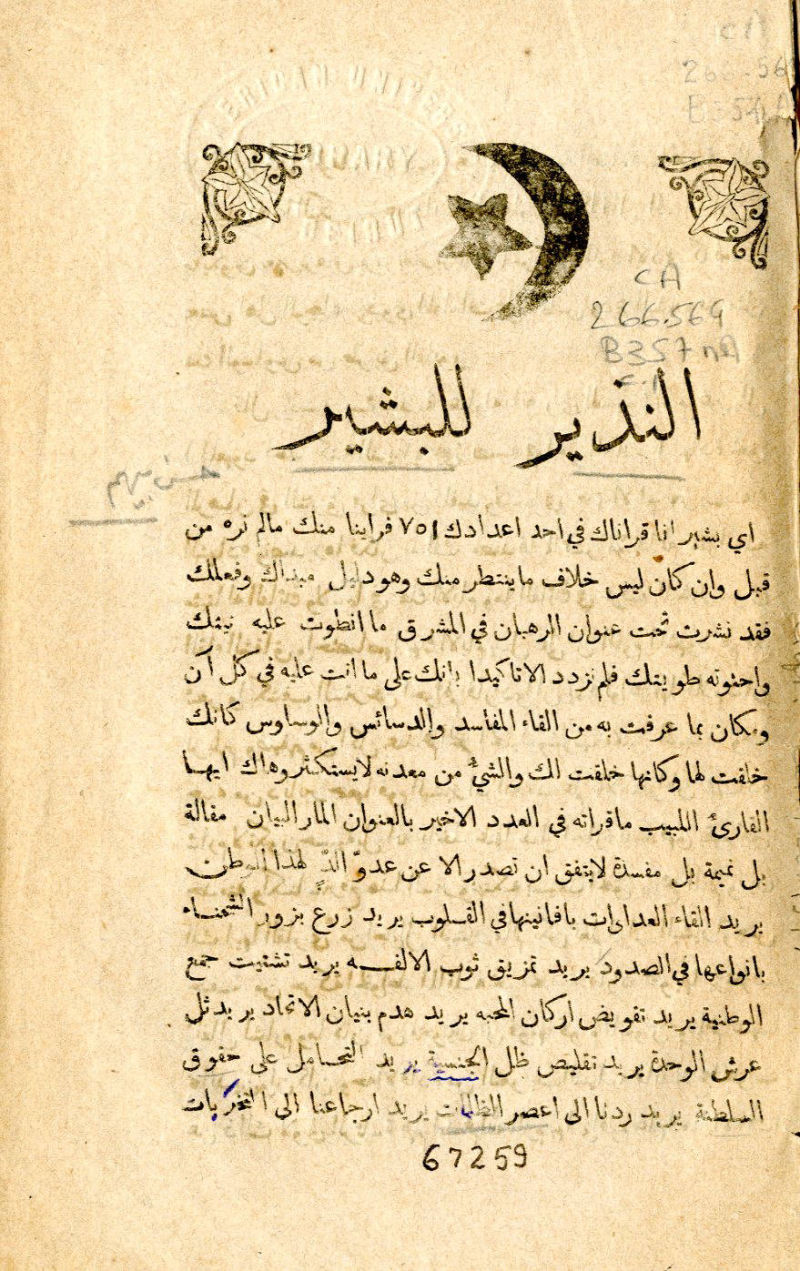 AMERICAN UNIVERSITY
LIBRARY
BEIRUT
CA
266.569
CA
266.569
B357nA
النذير للبشير
اي بشير انا قراناك في احد اعدادك ٧٥١ فراينا منك مالم نره من
قبل وان كان ليس خلاف ما ينتظر منك وهو دليل مبداك وفعلك
فقد نشرت تحت عنوان الرهبان في المشرق ما انطوت عليه نيتك
واحتوته طويتك فلم نزدد الا تاكيدا بانك على ما انت عليه في كل آن
ومكان بما عرفت به من القاء المفاسد والدسائس والوساوس كانك
خلقت لها وكانها خلقت لك والشيء من معدنه لا يستكثر وهاك ايها
القارئ اللبيب ما قراته في العدد الاخير بالعنوان المار البيان مقالة
بل نميمة بل مفسدة لا يتفق ان تصدر الا عن عدوّ الدّ لهذا الوطن
يريد القاء العداوات بافانينها في القلوب يريد زرع بزور الشحناء
بانواعها في الصدور يريد تمزيق ثوب الالفـــه يريد تشتيت جمع
الوطنية يريد تقويض اركان المحبه يريد هدم بنيان الاتحاد يريد ثل
عرش الوحدة يريد تقليص ظل الجنسية يريد التحامل على حقوق
السلطنة يريد ردنا الى اعصر الظلمات يريد ارجاعنا الى التحزبات
67259